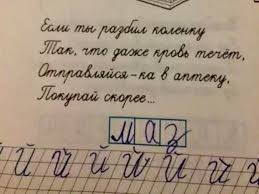 Если ты разбил коленку
Так, что даже кровь течёт,
Отправляйся-ка в аптеку,
Покупай скорее...
маз
й й й й й й й